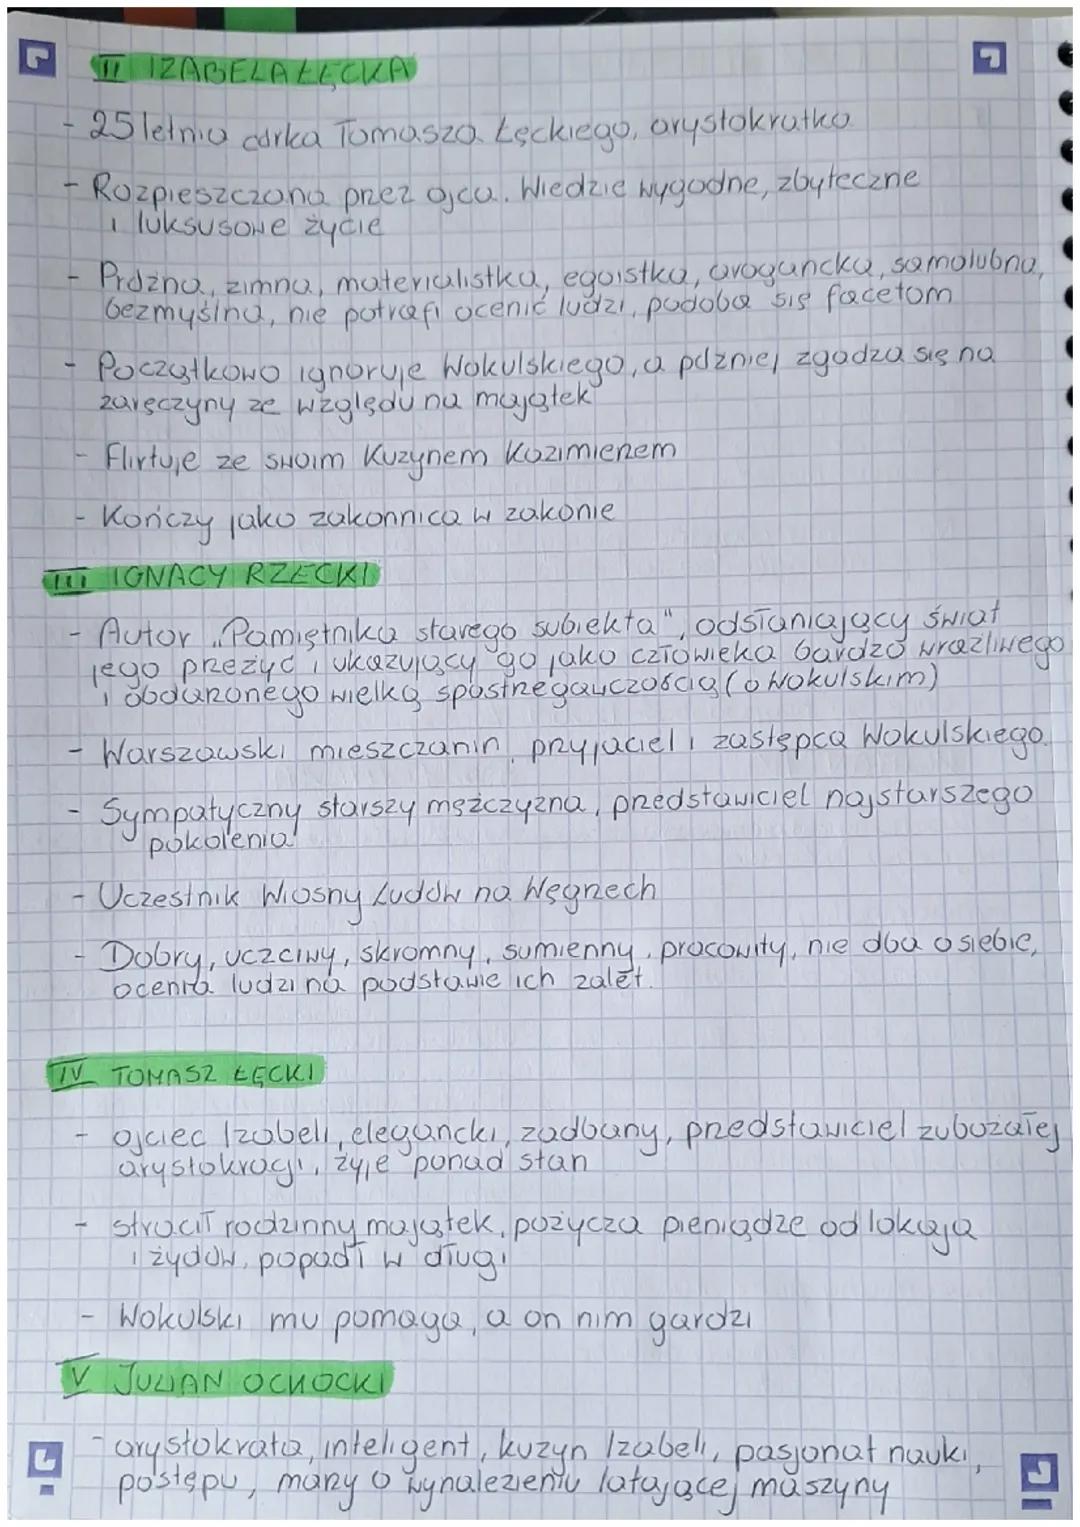 II IZABELA ŁĘCKA
- 25 letnia córka Tomasza Łęckiego, arystokratka
- Rozpieszczona przez ojca. Wiedzie wygodne, zbyteczne
i luksusowe życie
- Próżna, zimna, materialistka, egoistka, arogancka, samolubna,
bezmyślna, nie potrafi ocenić ludzi, podoba się facetom
- Początkowo ignoruje Wokulskiego, a później zgadza się na
zaręczyny ze względu na majątek
- Flirtuje ze swoim kuzynem Kazimierzem
- Kończy jako zakonnica w zakonie
III IGNACY RZECKI
- Autor „Pamiętnika starego subiekta", odsłaniający świat
jego przeżyć i ukazujący go jako człowieka bardzo wrażliwego
i obdarzonego wielką spostrzegawczością (o Wokulskim)
- Warszawski mieszczanin, przyjaciel i zastępca Wokulskiego.
- Sympatyczny starszy mężczyzna, przedstawiciel najstarszego
pokolenia
- Uczestnik Wiosny Ludów na Węgrzech
- Dobry, uczciwy, skromny, sumienny, pracowity, nie dba o siebie,
ocenia ludzi na podstawie ich zalet.
IV TOMASZ ŁĘCKI
- ojciec Izabeli, elegancki, zadbany, przedstawiciel zubożałej
arystokracji, żyje ponad stan
- stracił rodzinny majątek, pożycza pieniądze od lokaja
i żydów, popadł w długi
- Wokulski mu pomaga, a on nim gardzi
V JULIAN OCHOCKI
- arystokrata, inteligent, kuzyn Izabeli, pasjonat nauki,
postępu, marzy o wynalezieniu latającej maszyny